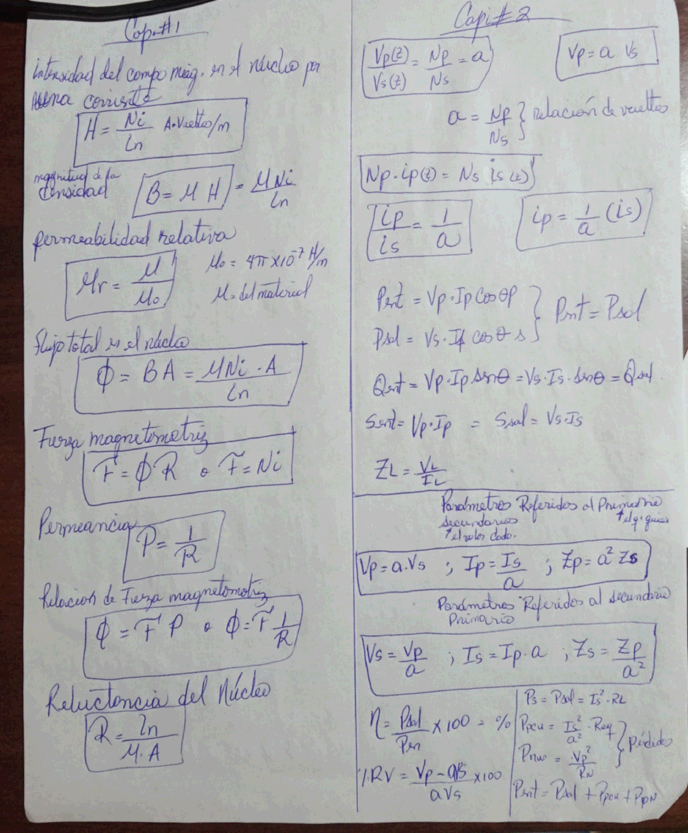 Cap. #1
Intensidad del campo mag. en el núcleo por
una corriente
H = Ni / ln A·vueltas/m
magnitud de la
densidad
B = μ H = μNi / ln
permeabilidad relativa
μr = μ / μo
μo = 4π x10⁻⁷ H/m
μ = del material
flujo total en el núcleo
φ = BA = μNi · A / ln
Fuerza magnetomotriz
F = φ R o F = Ni
Permeancia
P = 1 / R
Relacion de Fuerza magnetomotriz
φ = F P o φ = F 1 / R
Reluctancia del Núcleo
R = ln / μ·A
Capi #2
Vp(t) / Vs(t) = Np / Ns = a
Vp = a Vs
a = Np / Ns } relación de vueltas
Np · ip(t) = Ns is(t)
ip / is = 1 / a
ip = 1 / a (is)
Pent = Vp · Ip cos θp
Psal = Vs · Is cos θs
} Pent = Psal
Qent = Vp · Ip senθ = Vs · Is · senθ = Qsal
Sent = Vp · Ip = Ssal = Vs · Is
ZL = VL / IL
Parámetros Referidos al Primario
secundarios
Vp = a · Vs ; Ip = Is / a ; Zp = a² Zs
Parámetros Referidos al secundario
Primario
Vs = Vp / a ; Is = Ip · a ; Zs = Zp / a²
η = Psal / Pen x 100 = %
%RV = Vp - aVs / aVs x100
Ps = Psal = Is² · RL
Ppcu = Is² / a² · Req
Pnu = Vp² / RN
} Pérdidas
Pent = Psal + Ppcu + PpN